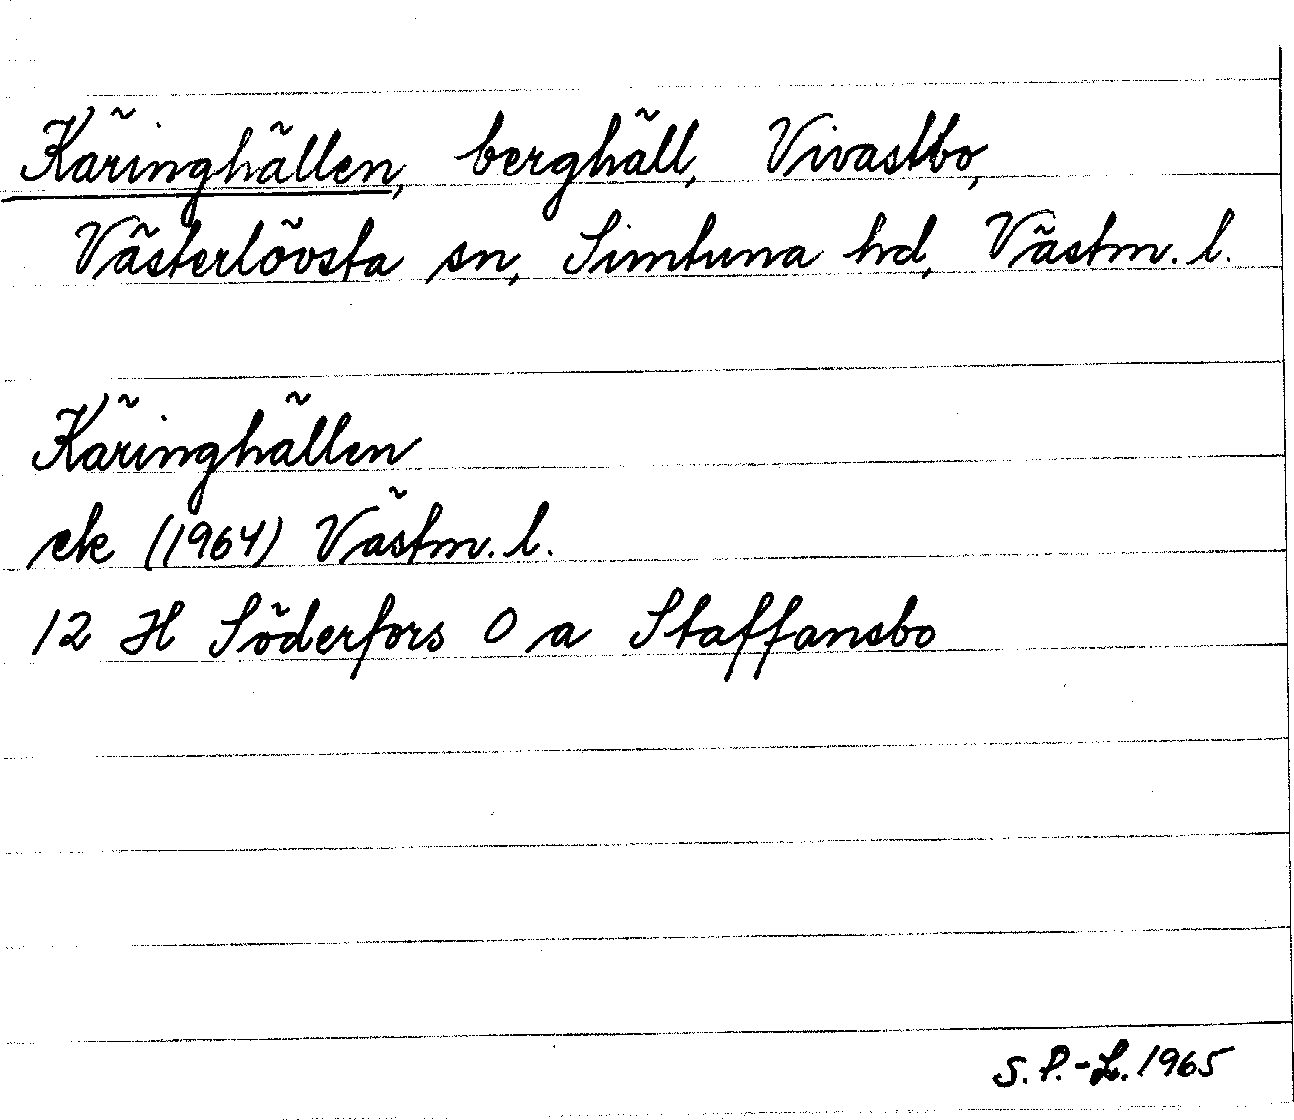 Käringhällen, berghäll, Vivastbo,
Västerlövsta sn, Simtuna hd, Västm. l.
Käringhällen
ek (1964) Västm. l.
12 H Söderfors O a Staffansbo
S. P.-L. 1965